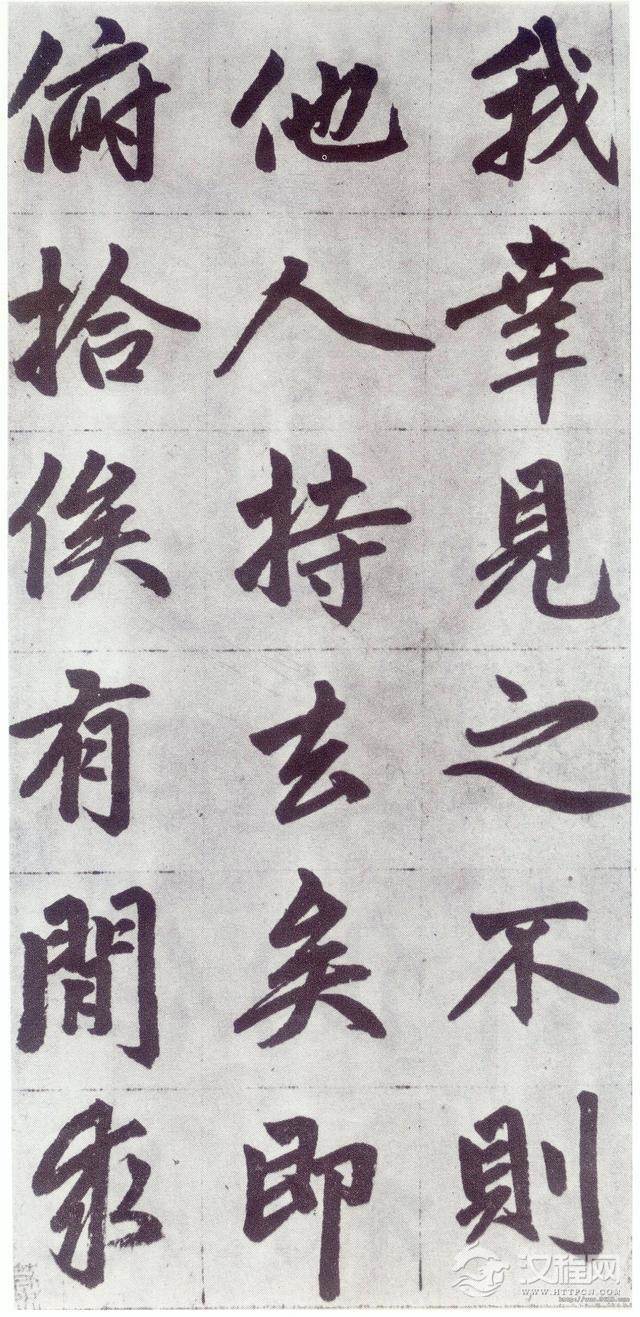 我幸見之不則
他人持去矣即
俯拾俟有閒求
汉程网
WWW.HTTPCN.COM